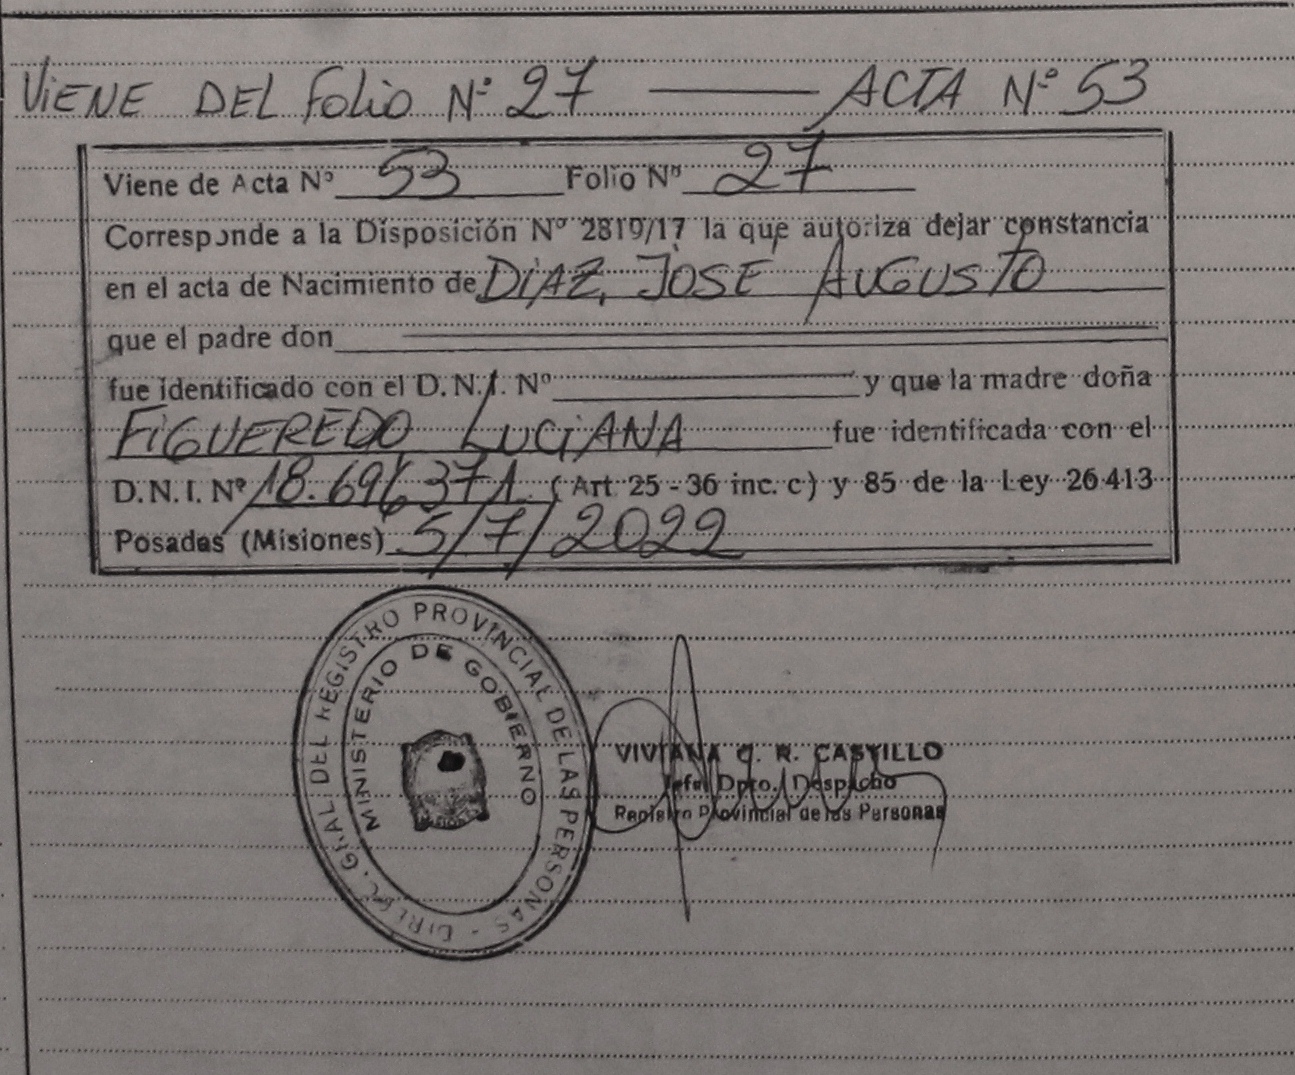 ViENE DEL Folio Nº 27 ACTA Nº 53
Viene de Acta Nº 53 Folio Nº 27
Corresponde a la Disposición Nº 2819/17 la que autoriza dejar constancia
en el acta de Nacimiento de DIAZ, JOSE AUGUSTO
que el padre don
fue identificado con el D.N.I. Nº y que la madre doña
FIGUEREDO LUCIANA fue identificada con el
D.N.I. Nº (Art 25 - 36 inc. c) y 85 de la Ley 26413
Posadas (Misiones) 5/7/2022
DIREC. GRAL. DEL REGISTRO PROVINCIAL DE LAS PERSONAS -
MINISTERIO DE GOBIERNO
VIVIANA C. R. CASTILLO
Jefe Dpto. Despacho
Registro Provincial de las Personas